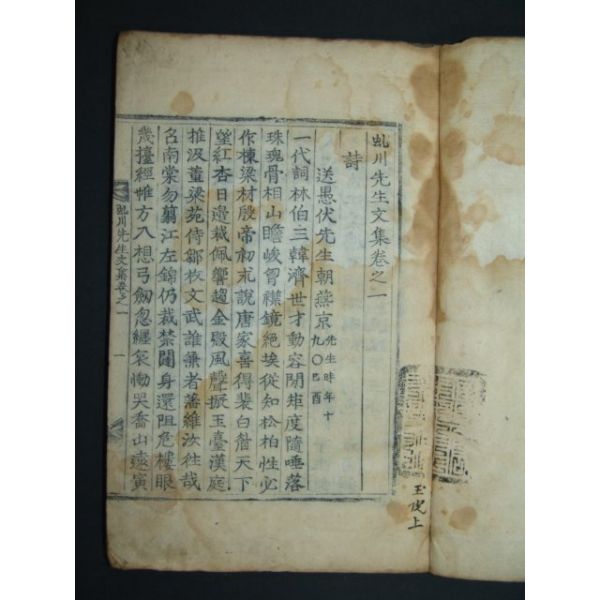 虬川先生文集卷之一
詩
送愚伏先生朝燕京先生時年十九〇己酉
一代詞林伯三韓濟世才動容閒矩度隨唾落
珠瑰骨相山瞻峻胷襟鏡絕埃從知松柏性必
作棟梁材殷帝初求說唐家喜得裴白麻天下
望紅杏日邊栽佩響趨金殿風聲振玉臺漢庭
推汲董梁苑侍鄒枚文武誰兼者藩維汝往哉
召南棠勿翦江左錦仍裁禁闥身還阻危樓眼
幾擡經帷方入想弓劒忽纏哀慟哭喬山遠寅
虬川先生文集卷之一 一
上